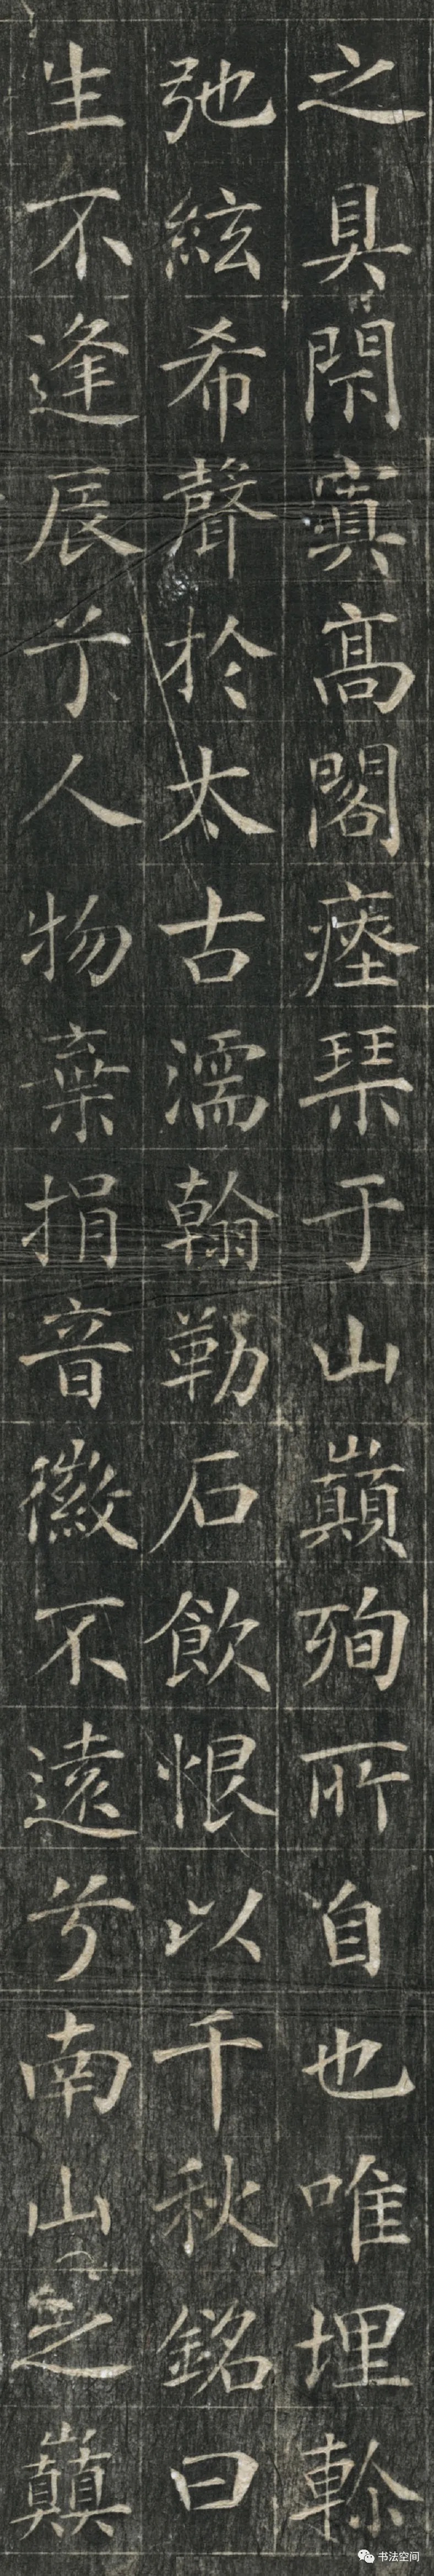 之具閑寘高閣瘞琴于山巔殉所自也唯埋軫
弛絃希聲於太古濡翰勒石飲恨以千秋銘曰
生不逢辰兮人物棄捐音徽不遠兮南山之巔
书法空间